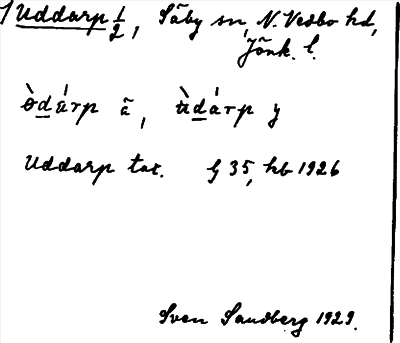 1 Uddarp 1/2, Säby sn, N. Vedbo hd,
Jönk. l.
ùdárp ä, ùdárp y
Uddarp tax. hb 1926
Sven Sandberg 1929.